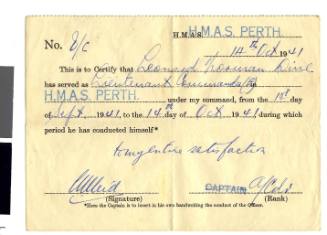 H.M.A.S. H.M.A.S. PERTH.
No. 14th Oct 1941
This is to Certify that Leonard Norman
has served as Lieutenant Commander
H.M.A.S. PERTH. under my command, from the day
of Sept 1941, to the 14th day of Oct 1941 during which
period he has conducted himself*
to my entire satisfaction
CAPTAIN
(Signature) (Rank)
*Here the Captain is to insert in his own handwriting the conduct of the Officer.